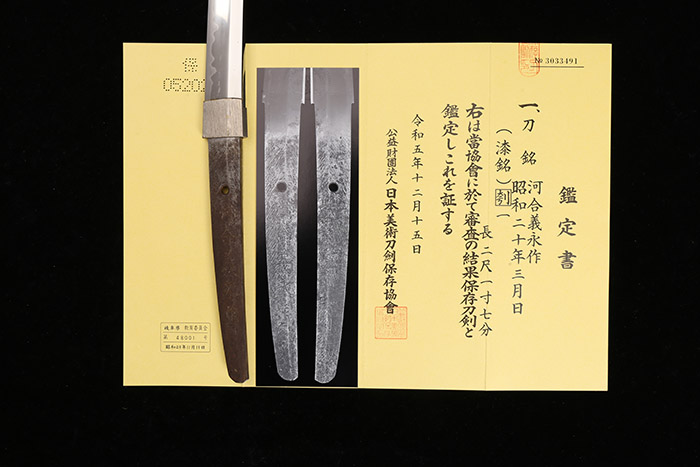 № 3033491
鑑定書
一、刀 銘 河合義永作
昭和二十年三月日
(漆銘) 刻(
長二尺一寸七分
右は當協會に於て審査の結果保存刀剣と
鑑定しこれを証する
令和五年十二月十五日
公益財團法人日本美術刀劍保存協會
保
05202
岐阜県 教育委員会
第 48001 号